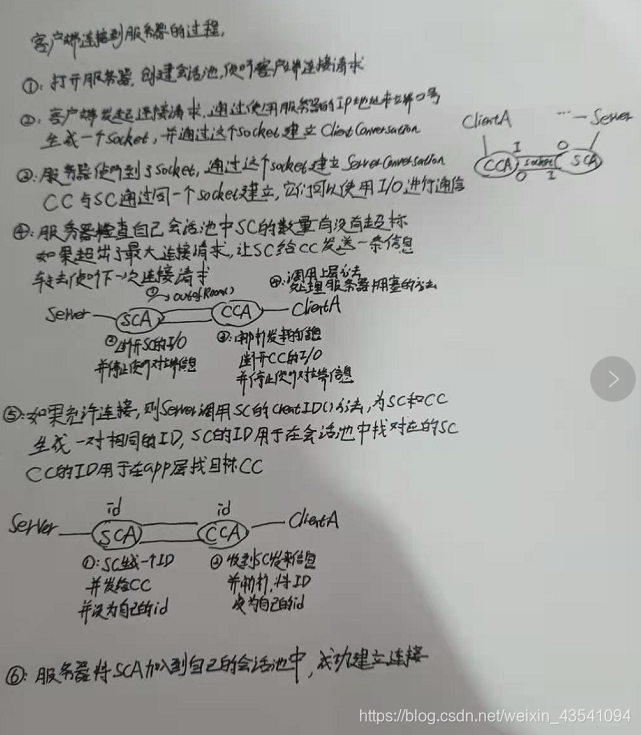 客户端连接到服务器的过程.
①: 打开服务器, 创建会话池, 侦听客户端连接请求
②: 客户端发起连接请求, 通过使用服务器的IP地址和端口号
生成一个Socket, 并通过这个Socket建立Client Conversation
ClientA ... Server
CCA I O socket O I SCA
③: 服务器侦听到了Socket, 通过这个socket建立Server Conversation
CC与SC通过同一个socket建立, 它们可以使用I/O进行通信
④: 服务器检查自己会话池中SC的数量有没有超标
如果超出了最大连接请求, 让SC给CC发送一条信息
转去侦听下一次连接请求
① outofRoom()
④: 调用上层方法
处理服务器拥塞的方法
Server SCA CCA ClientA
②断开SC的I/O
并停止侦听对端信息
③: 解析发来的信息
断开CC的I/O
并停止侦听对端信息
⑤: 如果允许连接, 则Server调用SC的creatID()方法, 为SC和CC
生成一对相同的ID, SC的ID用于在会话池中找对应的SC
CC的ID用于在app层找目标CC
id id
Server SCA CCA ClientA
①: SC生成一个ID
并发给CC
并设为自己的id
②收到SC发来信息
并解析, 将ID
设为自己的id
⑥: 服务器将SCA加入到自己的会话池中, 成功建立连接
https://blog.csdn.net/weixin_43541094